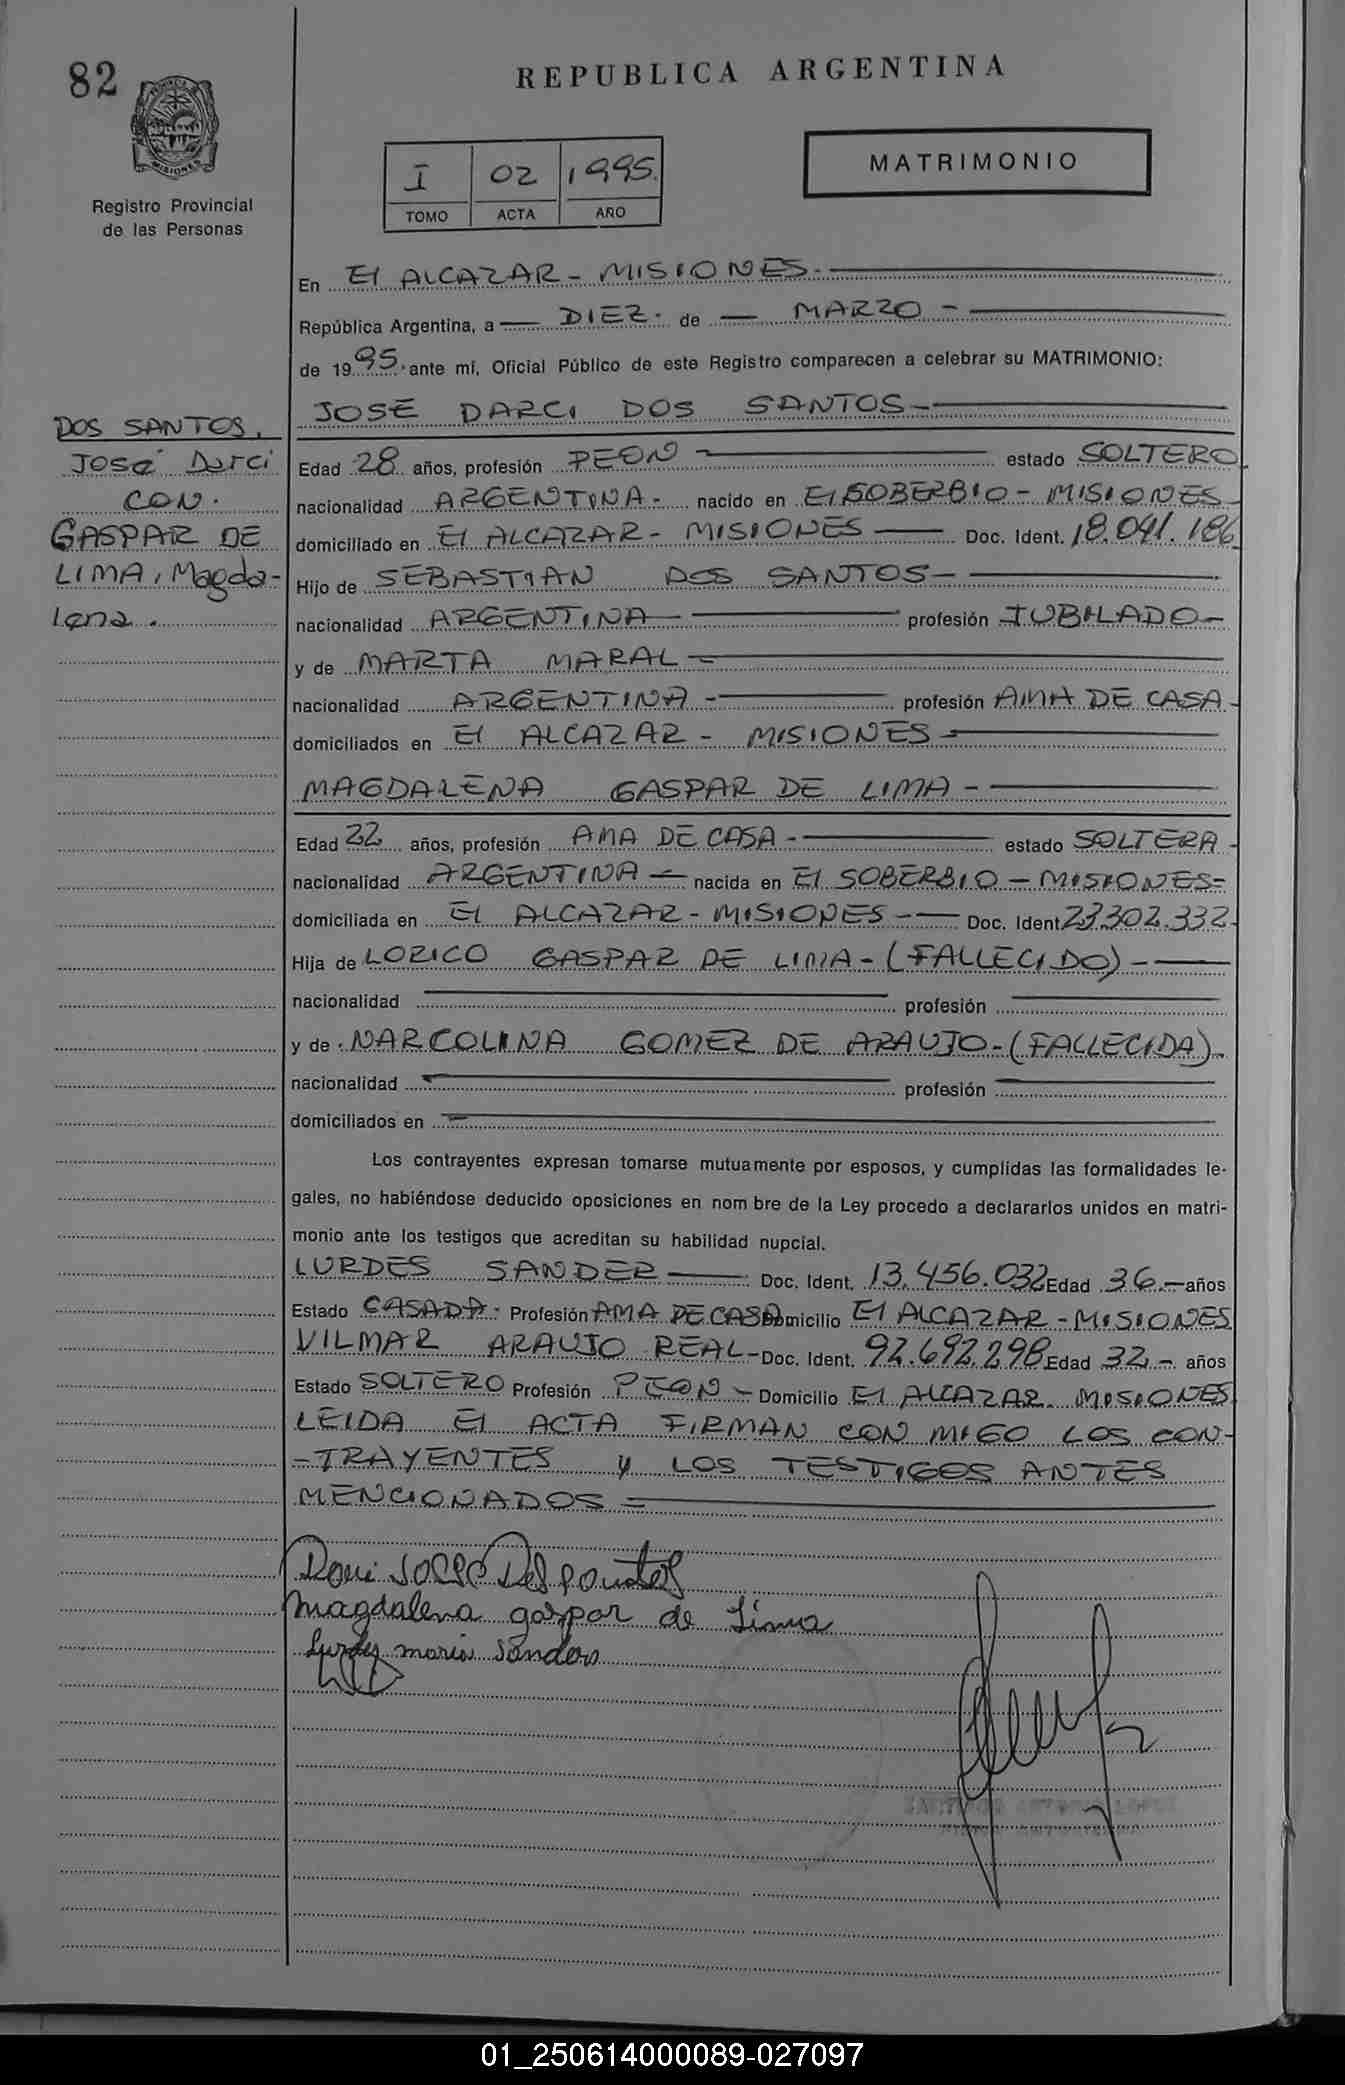 82
REPUBLICA ARGENTINA
PROVINCIA DE
MISIONES
Registro Provincial
de las Personas
I 02 1995.
TOMO ACTA AÑO
MATRIMONIO
En El ALCAZAR - MISIONES.-
República Argentina, a — DIEZ. de — MARZO -
de 1995. ante mí, Oficial Público de este Registro comparecen a celebrar su MATRIMONIO:
JOSE DARCI DOS SANTOS-
DOS SANTOS,
José Darci
CON.
GASPAR DE
LIMA, Magda-
lena.
Edad 28 años, profesión PEON — estado SOLTERO
nacionalidad ARGENTINA- nacido en El SOBERBIO - MISIONES-
domiciliado en El ALCAZAR- MISIONES — Doc. Ident. 18.041.186
Hijo de SEBASTIAN DOS SANTOS-
nacionalidad ARGENTINA- profesión JUBILADO-
y de MARTA MARAL-
nacionalidad ARGENTINA- profesión AMA DE CASA-
domiciliados en El ALCAZAR - MISIONES-
MAGDALENA GASPAR DE LIMA -
Edad 22 años, profesión AMA DE CASA- estado SOLTERA-
nacionalidad ARGENTINA- nacida en El SOBERBIO - MISIONES=
domiciliada en El ALCAZAR-MISIONES-— Doc. Ident 23.302.332-
Hija de LORICO GASPAR DE LIMA-(FALLECIDO)-
nacionalidad — profesión —
y de NARCOLINA GOMEZ DE ARAUJO-(FALLECIDA)-
nacionalidad — profesión —
domiciliados en —
Los contrayentes expresan tomarse mutuamente por esposos, y cumplidas las formalidades le-
gales, no habiéndose deducido oposiciones en nom bre de la Ley procedo a declararlos unidos en matri-
monio ante los testigos que acreditan su habilidad nupcial.
LURDES SANDER — Doc. Ident. 13.456.032 Edad 36.- años
Estado CASADA. Profesión AMA DE CASA Domicilio El ALCAZAR-MISIONES
VILMAR ARAUJO REAL- Doc. Ident. 92.692.298 Edad 32.- años
Estado SOLTERO Profesión PEON - Domicilio El ALCAZAR. MISIONES
LEIDA El ACTA FIRMAN CON MIGO LOS CON-
-TRAYENTES y LOS TESTIGOS ANTES
MENCIONADOS =
magdalena gaspar de Lima
maria Sander
01_250614000089-027097